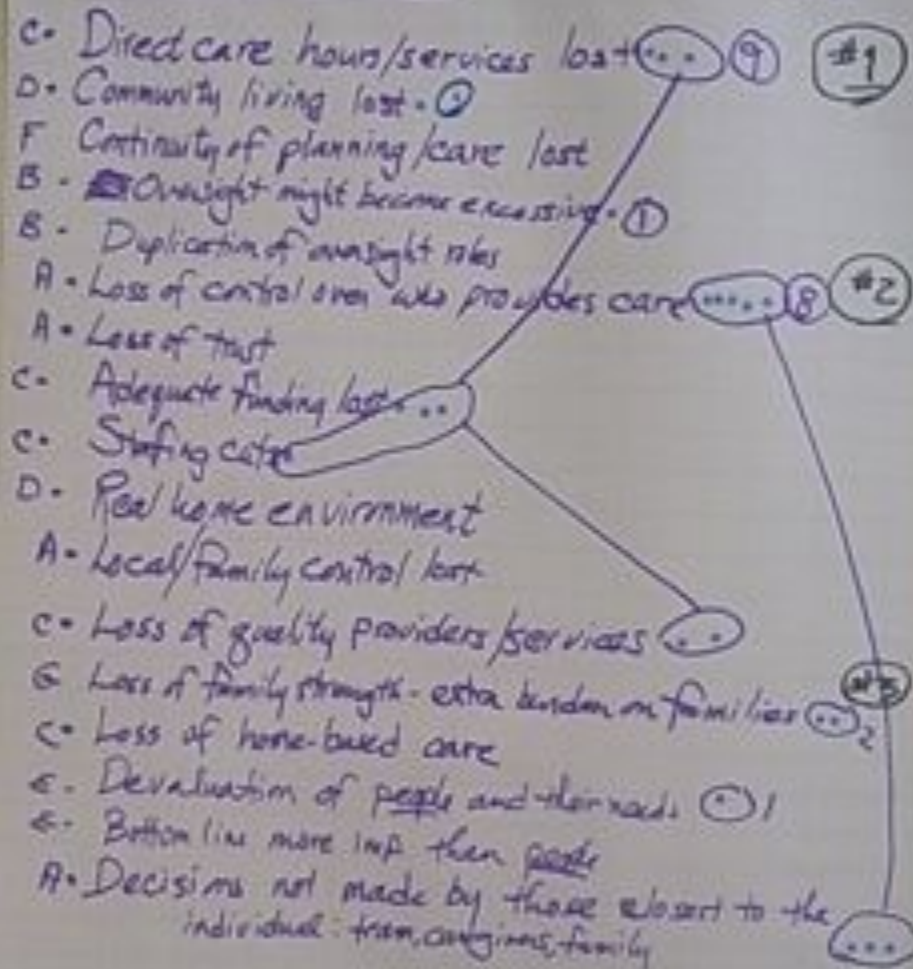 C • Direct care hours/services lost • • 9 #1
D • Community living lost •
F Continuity of planning/care lost
B - Oversight might become excessive • 1
B - Duplication of oversight roles
A • Loss of control over who provides care • • • • • 8 #2
A • Loss of trust
C • Adequate funding lost • • •
C • Staffing cuts
D • Real home environment
A • Local/family control lost
C • Loss of quality providers/services • •
G Loss of family strength - extra burden on families • • 2 #3
C • Loss of home-based care
E - Devaluation of people and their needs • 1
E - Bottom line more imp than people
A • Decisions not made by those closest to the
individual: team, caregivers, family • • •